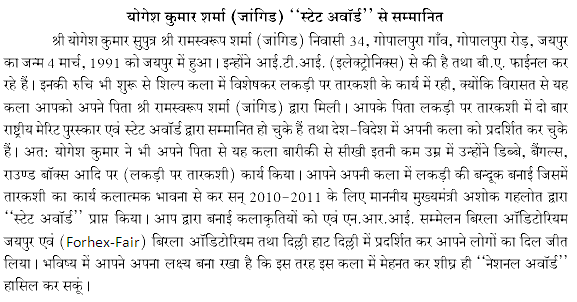 योगेश कुमार शर्मा (जांगिड) ‘‘स्टेट अवॉर्ड’’ से सम्मानित
श्री योगेश कुमार सुपुत्र श्री रामस्वरूप शर्मा (जांगिड) निवासी 34, गोपालपुरा गाँव, गोपालपुरा रोड़, जयपुर
का जन्म 4 मार्च, 1991 को जयपुर में हुआ। इन्होंने आई.टी.आई. (इलेक्ट्रोनिक्स) से की है तथा बी.ए. फाईनल कर
रहे हैं। इनकी रुचि भी शुरू से शिल्प कला में विशेषकर लकड़ी पर तारकशी के कार्य में रही, क्योंकि विरासत से यह
कला आपको अपने पिता श्री रामस्वरूप शर्मा (जांगिड) द्वारा मिली। आपके पिता लकड़ी पर तारकशी में दो बार
राष्ट्रीय मेरिट पुरस्कार एवं स्टेट अवॉर्ड द्वारा सम्मानित हो चुके हैं तथा देश-विदेश में अपनी कला को प्रदर्शित कर चुके
हैं। अतः योगेश कुमार ने भी अपने पिता से यह कला बारीकी से सीखी इतनी कम उम्र में उन्होंने डिब्बे, बैंगल्स,
राउण्ड बॉक्स आदि पर (लकड़ी पर तारकशी) कार्य किया। आपने अपनी कला में लकड़ी की बन्दूक बनाई जिसमें
तारकशी का कार्य कलात्मक भावना से कर सन् 2010-2011 के लिए माननीय मुख्यमंत्री अशोक गहलोत द्वारा
‘‘स्टेट अवॉर्ड’’ प्राप्त किया। आप द्वारा बनाई कलाकृतियों को एवं एन.आर.आई. सम्मेलन बिरला ऑडिटोरियम
जयपुर एवं (Forhex-Fair) बिरला ऑडिटोरियम तथा दिल्ली हाट दिल्ली में प्रदर्शित कर आपने लोगों का दिल जीत
लिया। भविष्य में आपने अपना लक्ष्य बना रखा है कि इस तरह इस कला में मेहनत कर शीघ्र ही ‘‘नेशनल अवॉर्ड’’
हासिल कर सकूं।